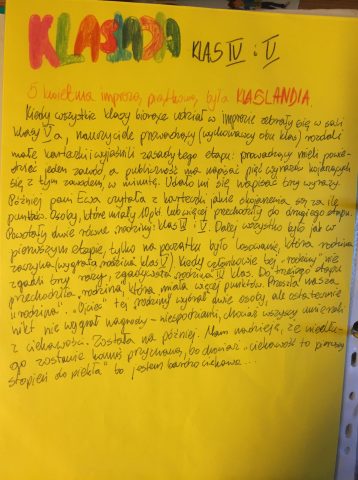 KLASLANDIA
KLAS IV i V
5 kwietnia imprezą piątkową była KLASLANDIA.
Kiedy wszystkie klasy biorące udział w imprezie zebrały się w sali
klasy V a, nauczyciele prowadzący (wychowawcy obu klas) rozdali
małe karteczki i wyjaśnili zasady tego etapu: prowadzący mieli powie-
dzieć jeden zawód, a publiczność ma napisać pięć wyrazów kojarzących
się z tym zawodem, w minutę. Udało mi się napisać trzy wyrazy.
Później pani Ewa czytała z karteczki jakie skojarzenia są za ile
punktów. Osoby, które miały 10 pkt. lub więcej przechodziły do drugiego etapu.
Powstały dwie równe rodziny: klas IV i V. Dalej wszystko było jak w
pierwszym etapie, tylko na początku było losowanie, która rodzina
zaczyna (wygrała rodzina klas V). Kiedy członkowie tej „rodziny” nie
zgadli trzy razy, zgadywała rodzina IV klas. Do trzeciego etapu
przechodziła „rodzina”, która miała więcej punktów. Przeszła nasza
„rodzina”. „Ojciec” tej rodziny wybrał dwie osoby, ale ostatecznie
nikt nie wygrał nagrody – niespodzianki, chociaż wszyscy umierali
z ciekawości. Została na później. Mam nadzieję, że niedłu-
go zostanie komuś przyznana, bo chociaż „ciekawość to pierwszy
stopień do piekła” bo jestem bardzo ciekawa...